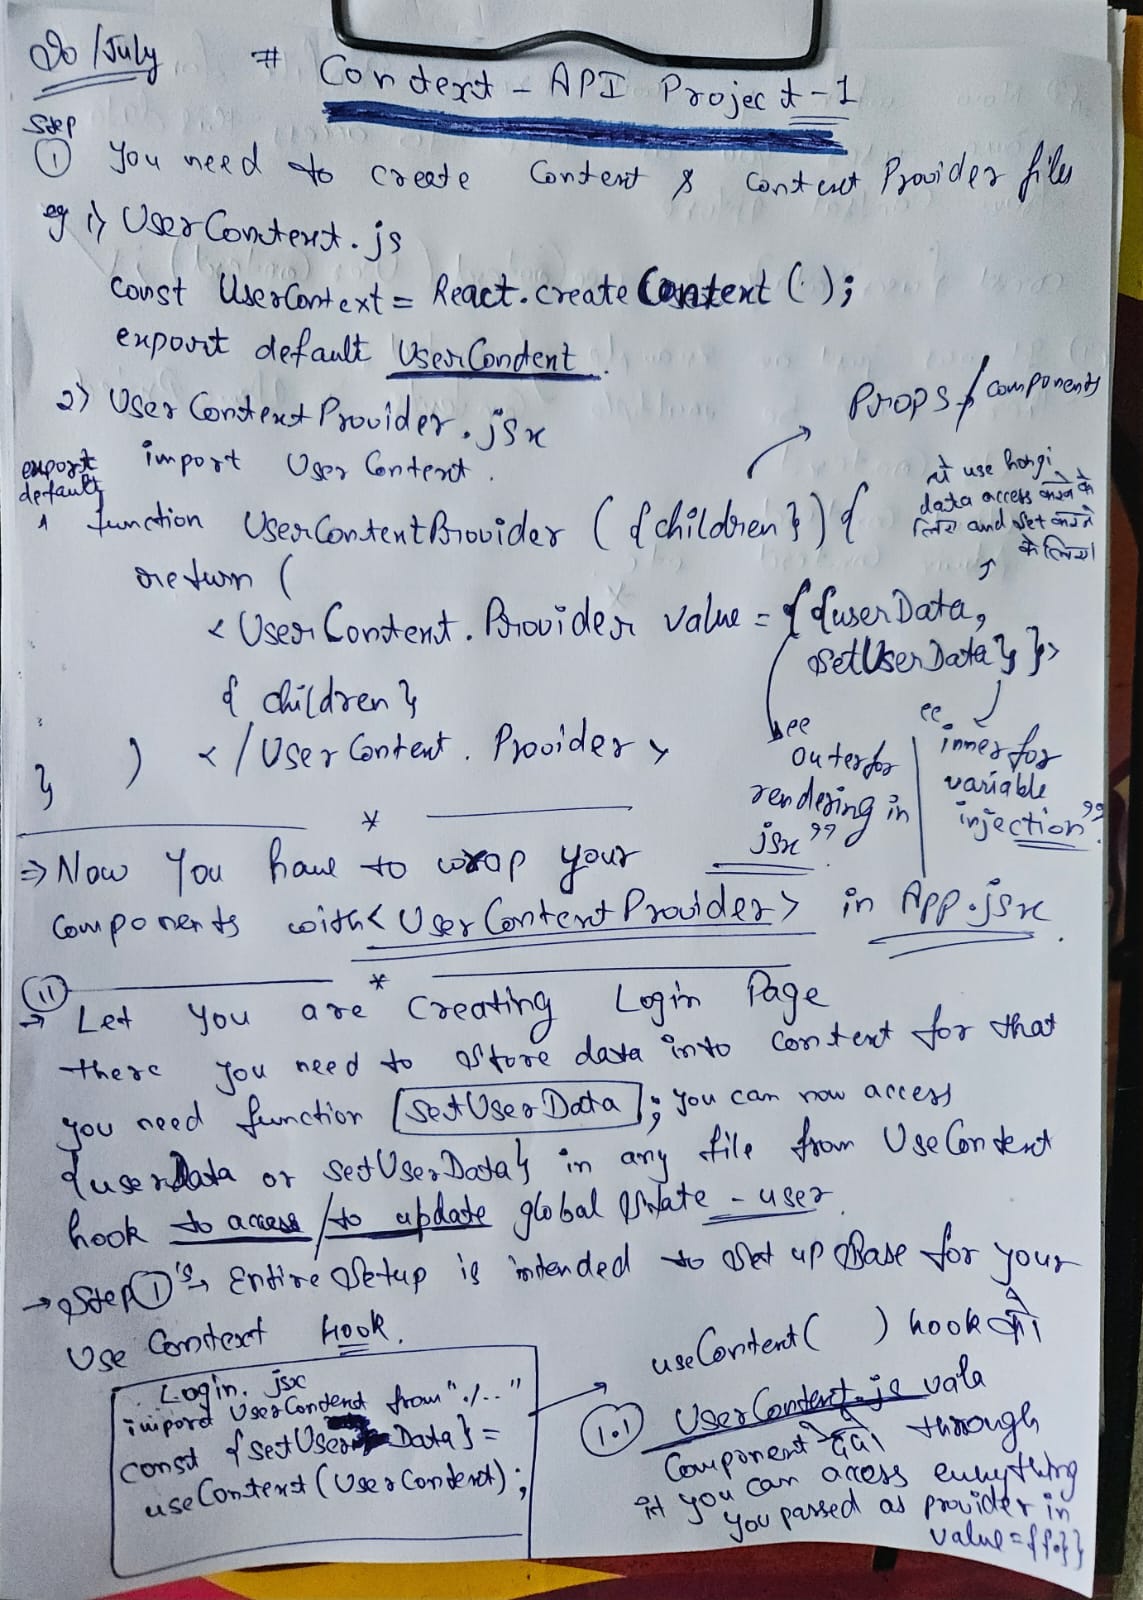 20/July
# Context - API Project-1
Step
① You need to create Context & Context Provider files
eg 1) UserContext.js
const UserContext = React.createContext();
export default UserContext.
2) UserContextProvider.jsx
Props / components
import UserContext.
export default
function UserContextProvider ({children}) {
ये use होंगी
data access करने के
लिए and set करने
के लिए।
return (
<UserContext.Provider value = {{userData,
setUserData}}>
{children}
</UserContext.Provider>
)
}
outer for
rendering in
jsx”
inner for
variable
injection”
*
⇒ Now You have to wrap your
components with <UserContextProvider> in App.jsx.
*
(11)
→ Let you are Creating Login Page
there you need to store data into context for that
you need function [setUserData]; you can now access
{userData or setUserData} in any file from UseContext
hook to access/to update global state - user
→ Step ①'s → Entire Setup is intended to set up Base for your
Use Context Hook.
Login.jsx
import UserContext from "./.."
const {setUserData} =
useContext(UserContext);
useContext( ) hook को
(1.1) UserContext.js vala
Component देदो through
it you can access everything
you passed as provider in
value={{.}}